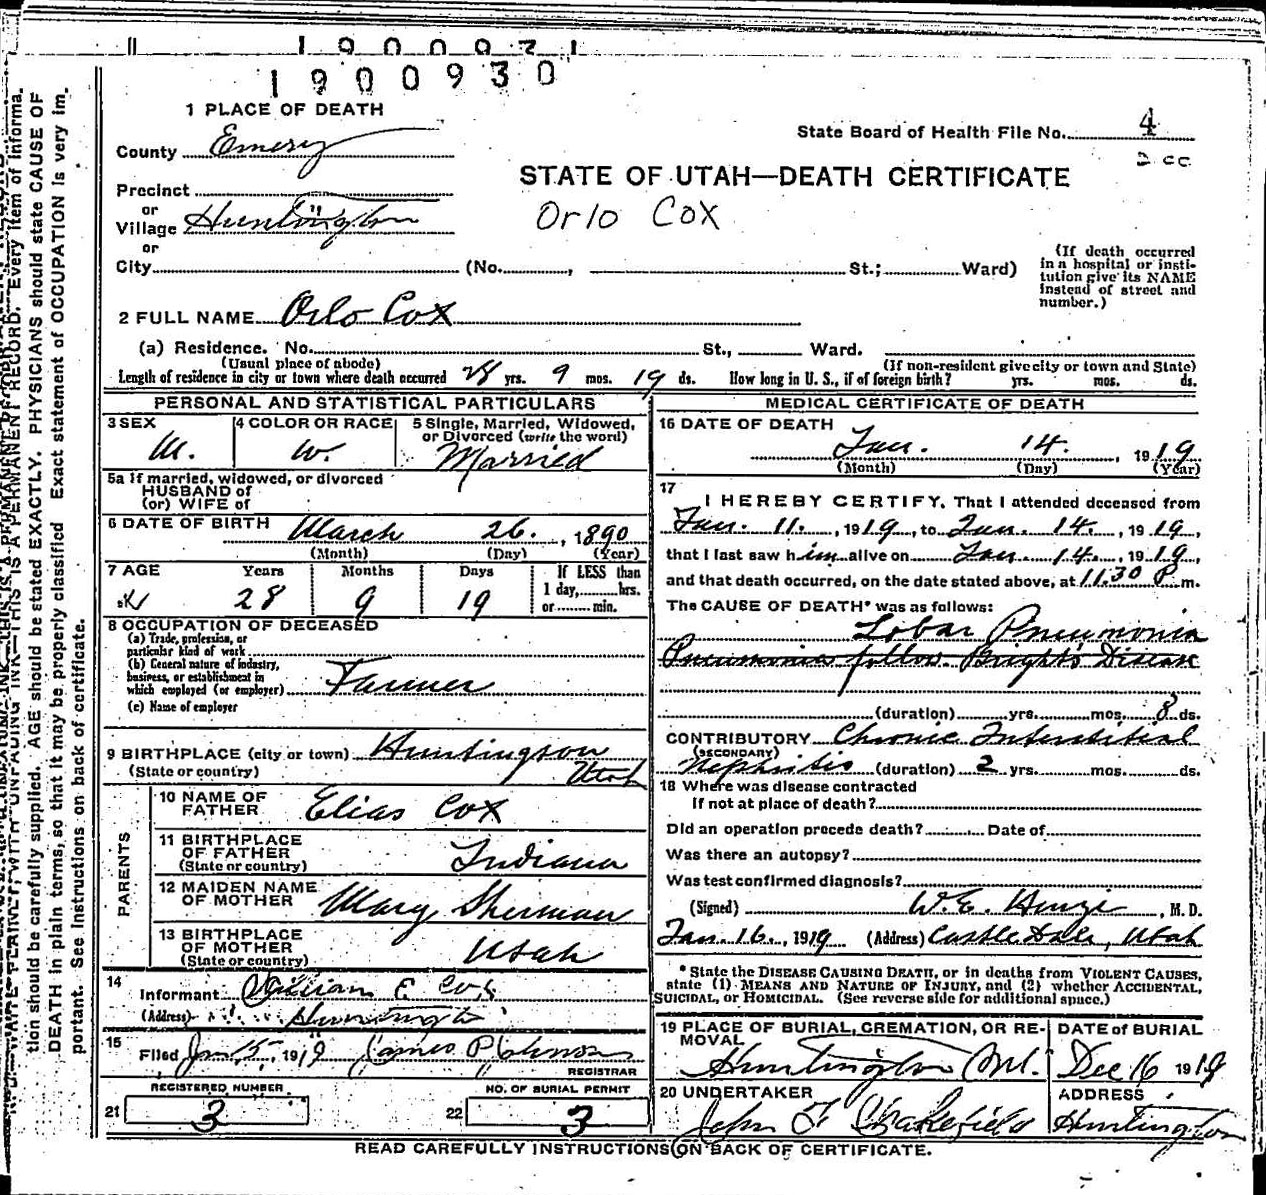 1900971
1900930
1 PLACE OF DEATH
County Emery
State Board of Health File No. 4
2 cc
STATE OF UTAH—DEATH CERTIFICATE
Orlo Cox
Precinct
or
Village Huntington
or
City (No. , St.; Ward)
(If death occurred in a hospital or insti-
tution give its NAME instead of street and
number.)
2 FULL NAME Orlo Cox
(a) Residence. No. St., Ward.
(Usual place of abode) (If non-resident give city or town and State)
Length of residence in city or town where death occurred 28 yrs. 9 mos. 19 ds. How long in U. S., if of foreign birth? yrs. mos. ds.
PERSONAL AND STATISTICAL PARTICULARS
3 SEX M.
4 COLOR OR RACE W.
5 Single, Married, Widowed, or Divorced (write the word) Married
5a If married, widowed, or divorced
HUSBAND of
(or) WIFE of
6 DATE OF BIRTH March 26, 1890
(Month) (Day) (Year)
7 AGE Years 28 Months 9 Days 19
If LESS than 1 day, hrs. or min.
8 OCCUPATION OF DECEASED
(a) Trade, profession, or particular kind of work
(b) General nature of industry, business, or establishment in which employed (or employer) Farmer
(c) Name of employer
9 BIRTHPLACE (city or town) Huntington
(State or country) Utah
PARENTS
10 NAME OF FATHER Elias Cox
11 BIRTHPLACE OF FATHER (State or country) Indiana
12 MAIDEN NAME OF MOTHER Mary Sherman
13 BIRTHPLACE OF MOTHER (State or country) Utah
14 Informant William E Cox
(Address) Huntington
15 Filed Jan 15, 1919 James P Johnson
REGISTRAR
REGISTERED NUMBER
21 3
NO. OF BURIAL PERMIT
22 3
MEDICAL CERTIFICATE OF DEATH
16 DATE OF DEATH
Jan. 14. , 1919
(Month) (Day) (Year)
17 I HEREBY CERTIFY, That I attended deceased from
Jan. 11., 1919, to Jan. 14., 1919,
that I last saw him alive on Jan. 14., 1919,
and that death occurred, on the date stated above, at 11.30 P m.
The CAUSE OF DEATH* was as follows:
Lobar Pneumonia
Pneumonia follow. Bright's Disease
(duration) yrs. mos. 8 ds.
CONTRIBUTORY Chronic Interstitial
(SECONDARY)
Nephritis (duration) 2 yrs. mos. ds.
18 Where was disease contracted
If not at place of death?
Did an operation precede death? Date of
Was there an autopsy?
Was test confirmed diagnosis?
(Signed) W. E. , M. D.
Jan. 16., 1919 (Address) Castle Dale, Utah
*State the DISEASE CAUSING DEATH, or in deaths from VIOLENT CAUSES,
state (1) MEANS AND NATURE OF INJURY, and (2) whether ACCIDENTAL,
SUICIDAL, or HOMICIDAL. (See reverse side for additional space.)
19 PLACE OF BURIAL, CREMATION, OR RE-
MOVAL
Huntington
DATE of BURIAL
Dec 16 1919
20 UNDERTAKER
John F Wakefield
ADDRESS
Huntington
READ CAREFULLY INSTRUCTIONS ON BACK OF CERTIFICATE.
tion should be carefully supplied. AGE should be stated EXACTLY. PHYSICIANS should state CAUSE OF
DEATH in plain terms, so that it may be properly classified Exact statement of OCCUPATION is very im-
portant. See Instructions on back of certificate.